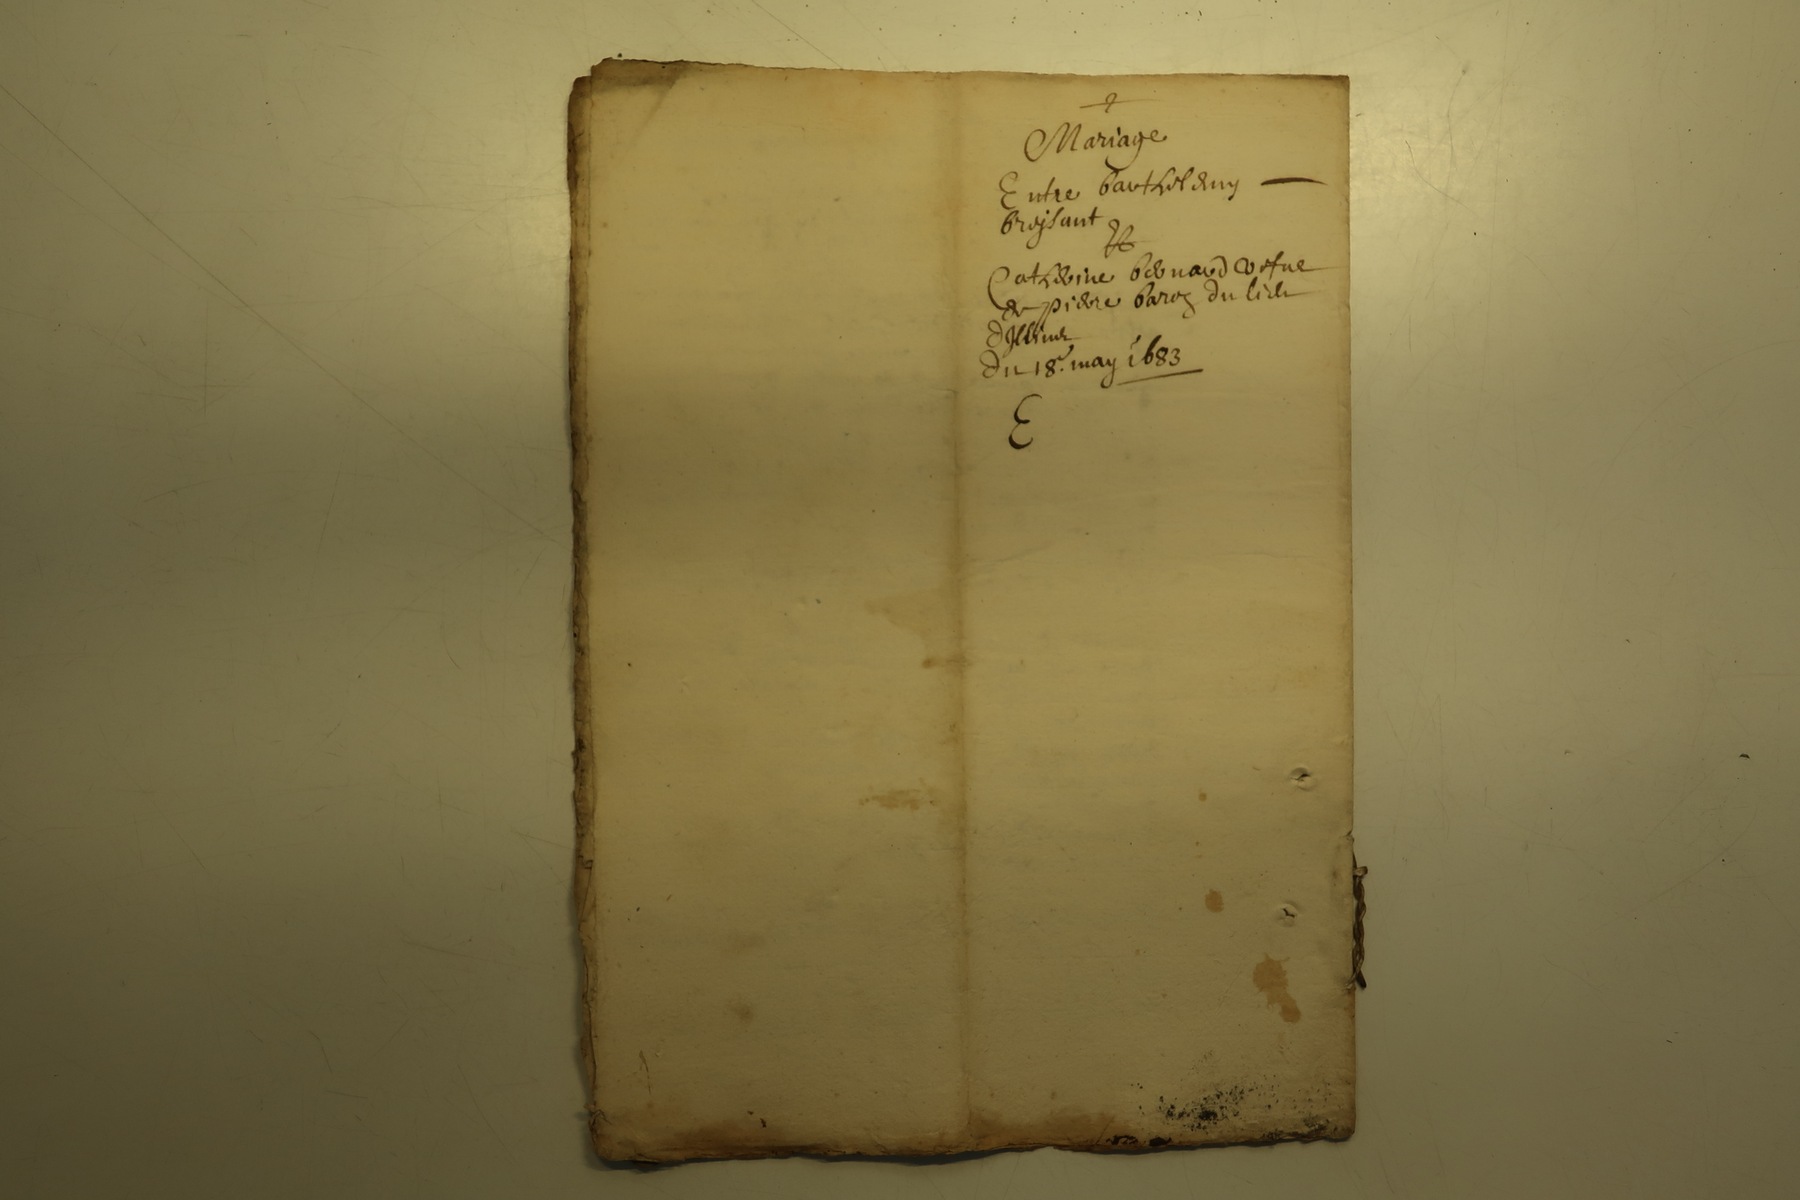 Mariage
Entre barthelemy
brojsant
&
Catherine bernard vefue
de pierre baroz du lieu
du 18e. may 1683
E